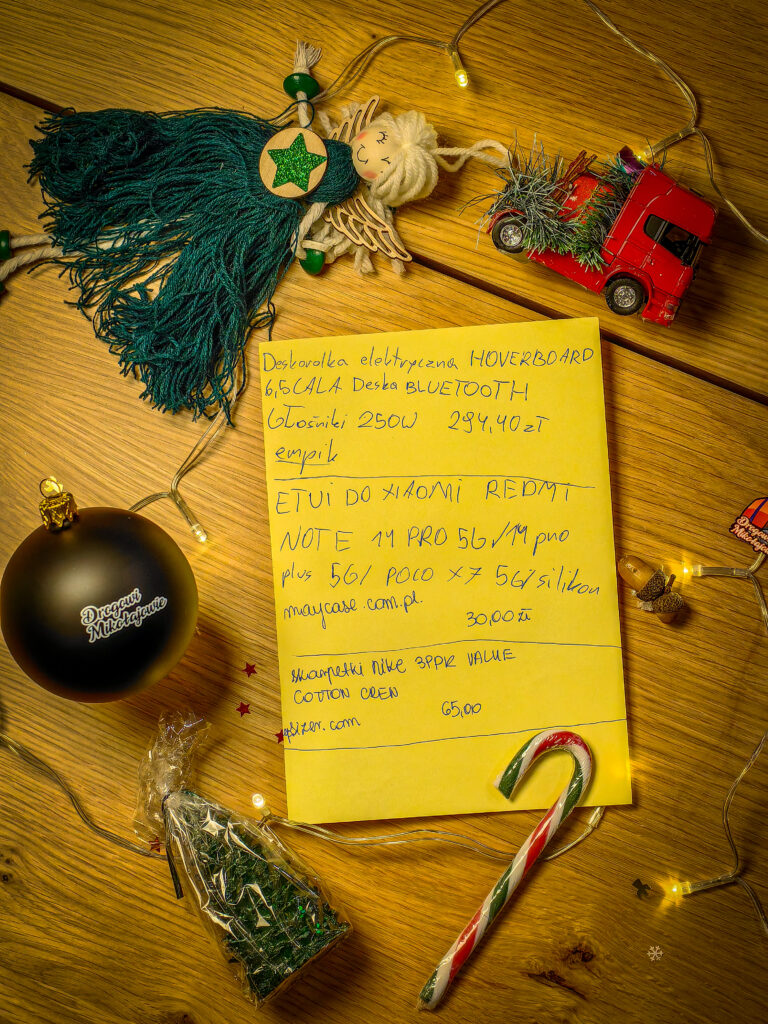 Deskorolka elektryczna HOVERBOARD
6,5 CALA Deska BLUETOOTH
Głośniki 250W 294,40 zł
empik
ETUI DO XIAOMI REDMI
NOTE 14 PRO 5G/14 pro
plus 5G/ POCO X7 5G/silikon
maycase.com.pl.
30,00 zł
skarpetki nike 3PPR VALUE
COTTON CREW
65,00
Drogowi
Mikołajowie
Drogowi
Mikołajowie